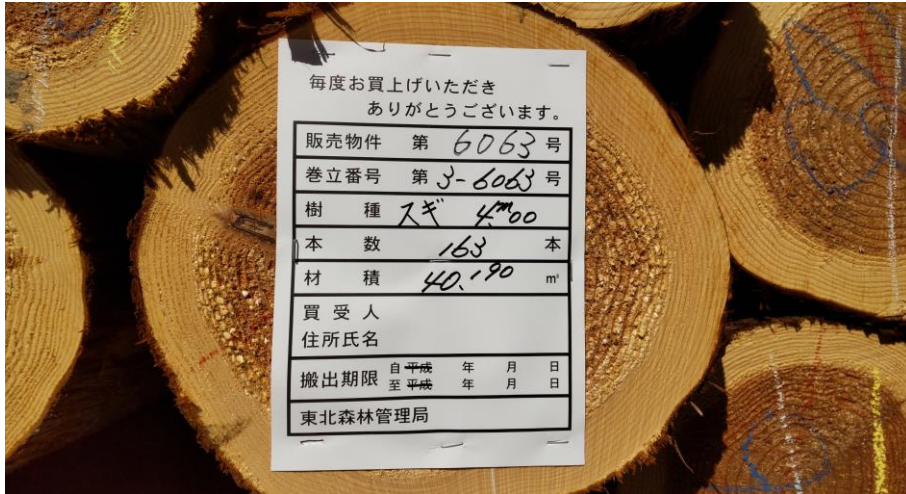 毎度お買上げいただき
ありがとうございます。
販売物件 第 6063 号
巻立番号 第 3-6063 号
樹種 スギ 4.m00
本数 163 本
材積 40.190 ㎥
買受人
住所氏名
搬出期限 自 平成 年 月 日
至 平成 年 月 日
東北森林管理局